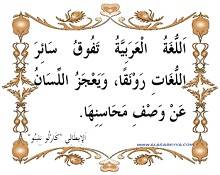 اَللُّغَةُ الْعَرَبِيَّةُ تَفُوقُ سَائِرَ
اللُّغَاتِ رَوْنَقًا، وَيَعْجَزُ اللِّسَانُ
عَنْ وَصْفِ مَحَاسِنِهَا.
الإيطالي "كارلو نلينو"